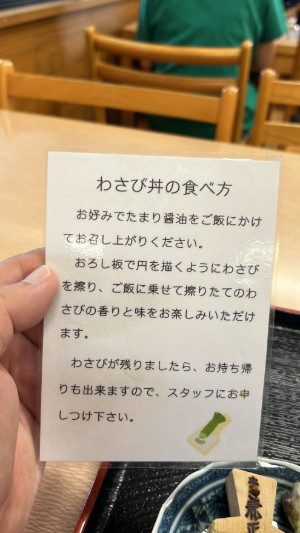 わさび丼の食べ方
お好みでたまり醤油をご飯にかけ
てお召し上がりください。
おろし板で円を描くようにわさび
を擦り、ご飯に乗せて擦りたてのわ
さびの香りと味をお楽しみいただけ
ます。
わさびが残りましたら、お持ち帰
りも出来ますので、スタッフにお申
しつけ下さい。